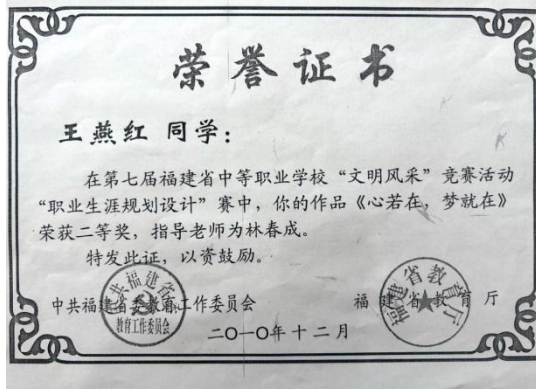 荣誉证书
王燕红 同学：
在第七届福建省中等职业学校“文明风采”竞赛活动
“职业生涯规划设计”赛中，你的作品《心若在，梦就在》
荣获二等奖，指导老师为林春成。
特发此证，以资鼓励。
中共福建省委教育工作委员会 福建省教育厅
二〇一〇年十二月
教育工作委员会
福建省教育厅